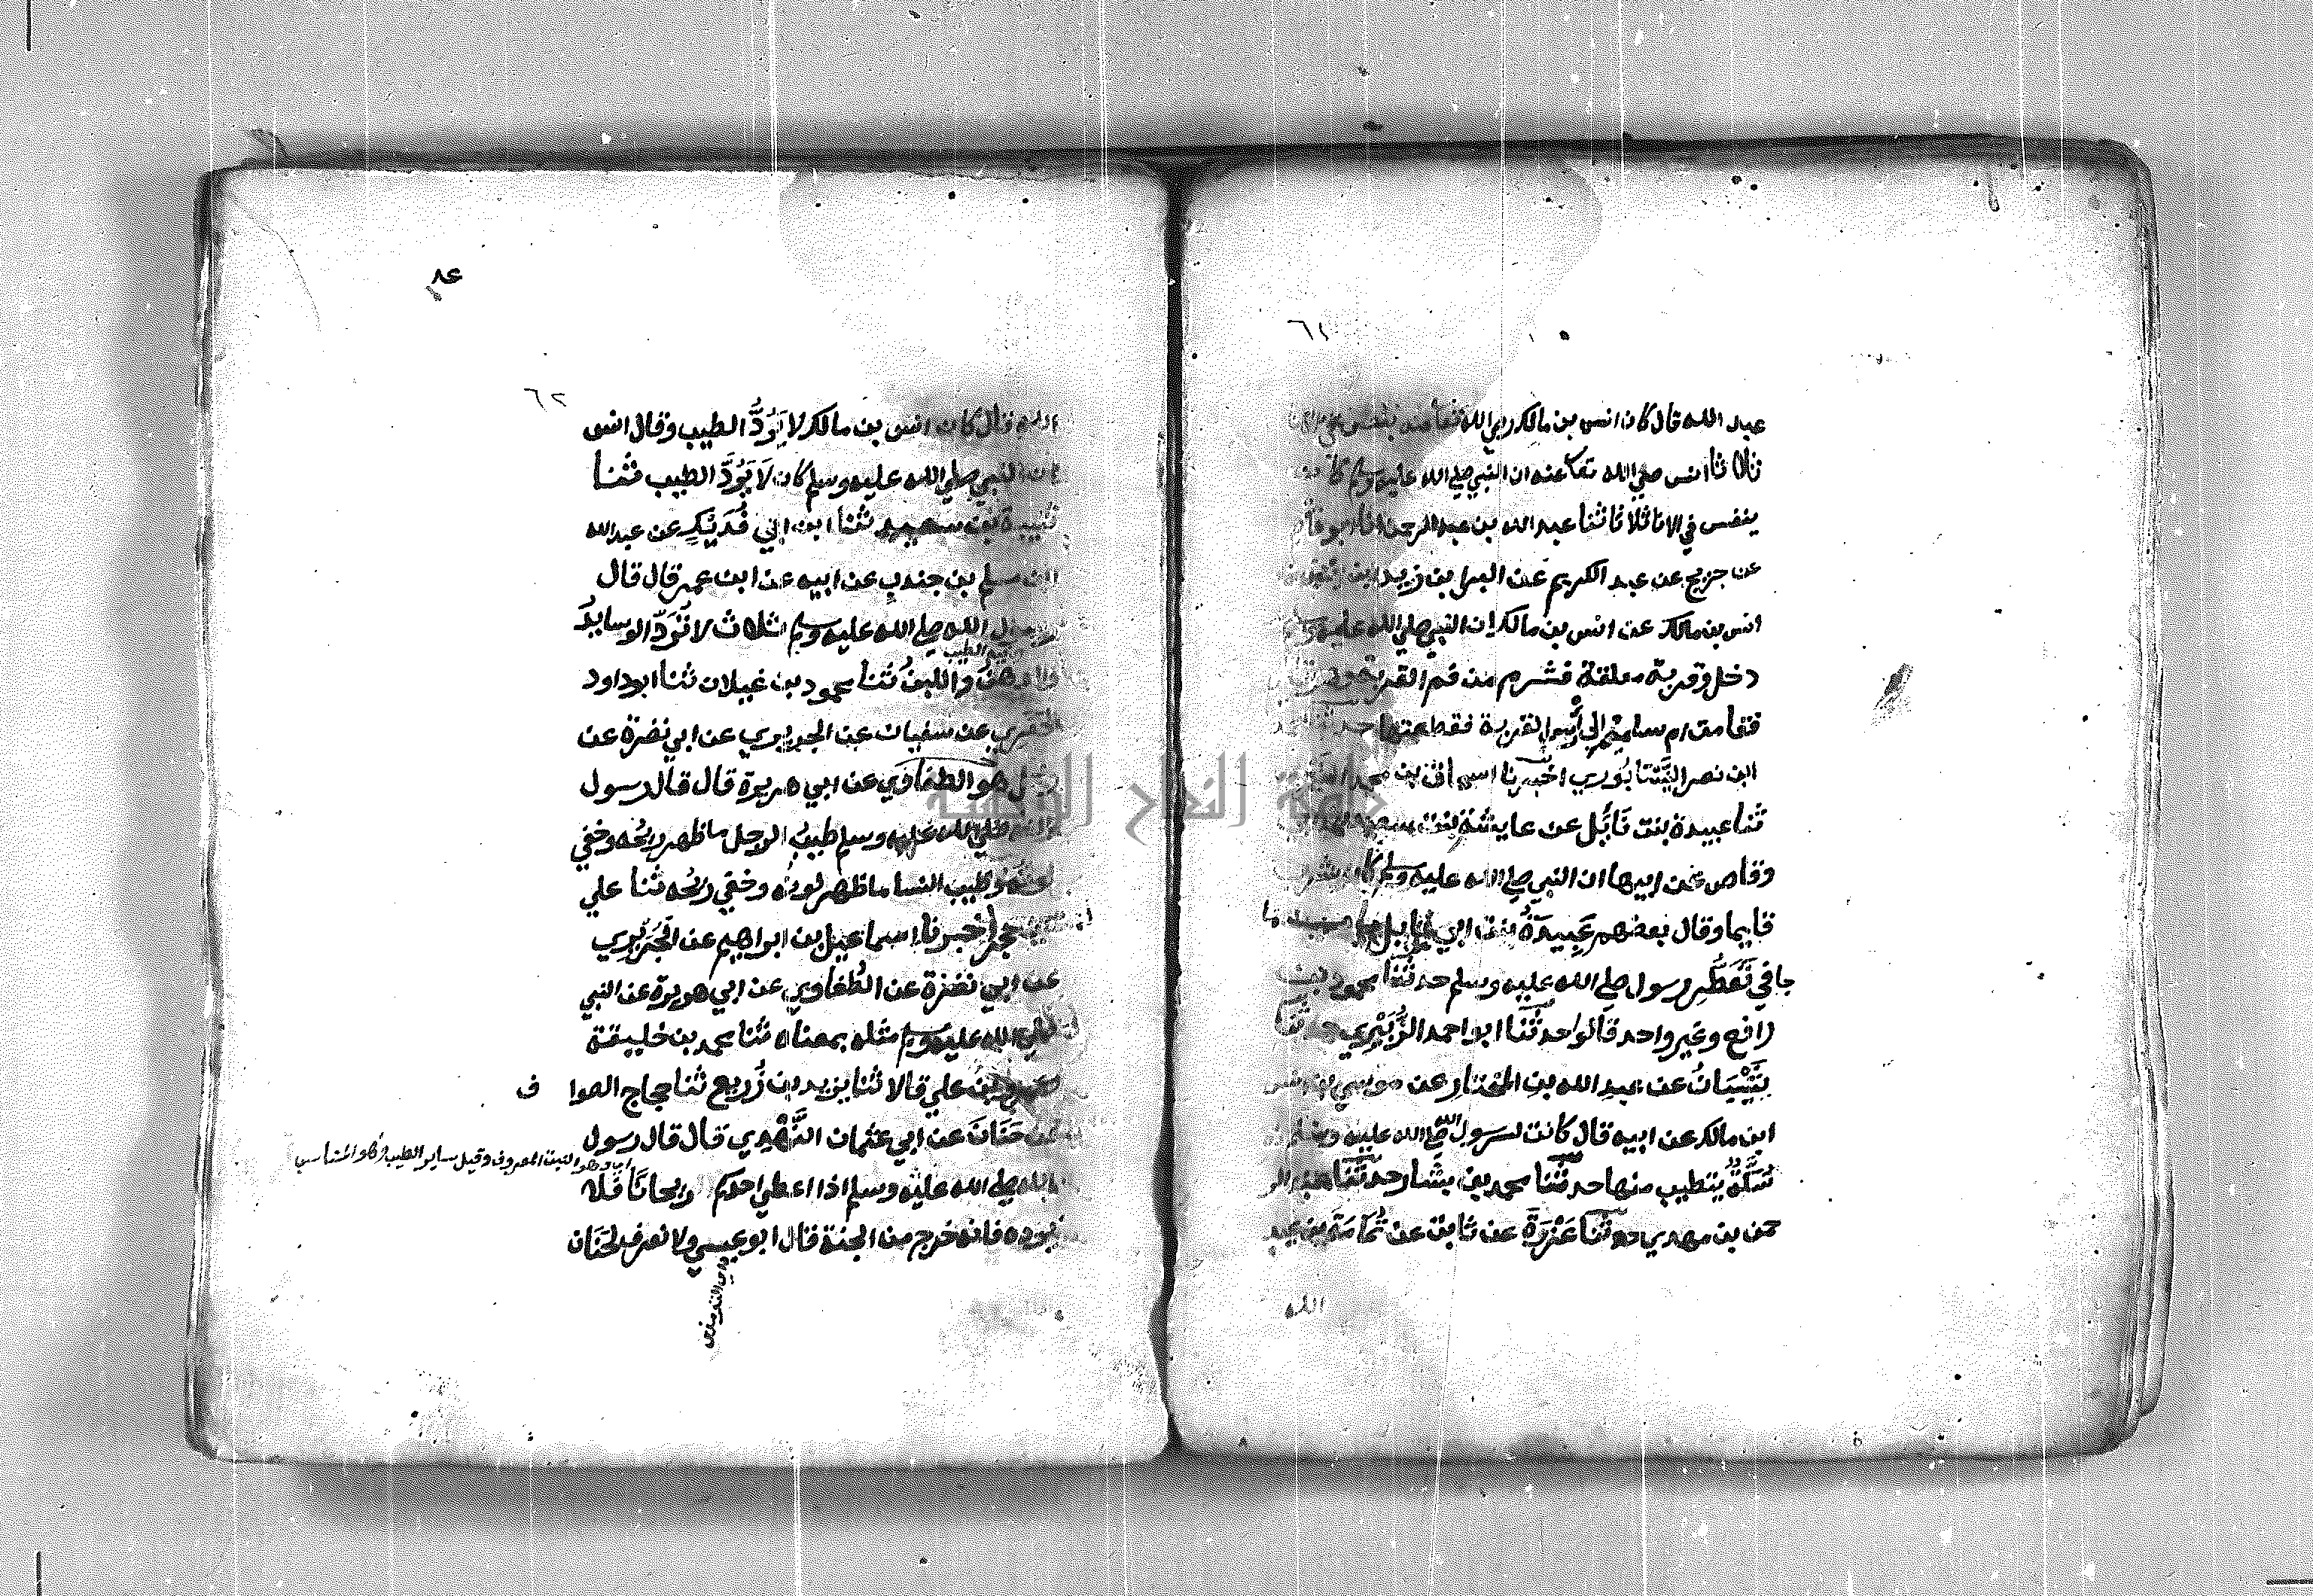 ٦١
عبد الله قال كان انس بن مالك رضي الله
ثلاثا انس صلي الله تعا عنه ان النبي صلي الله عليه وسلم كان
يتنفس في الانا ثلاثا ثنا عبد الله بن عبد الرحمن انا ابو
عن جزيج عن عبد الكريم عن البرا بن زيد ابن
انس بن مالك عن انس بن مالك ان النبي صلي الله عليه
دخل وقربة معلقة فشرم من فم القربة
فقامت ام سليم الي راس القربة فقطعتها حدثنا
ابن نصر النيسابوري اخبرنا اسحاق بن محمد
ثنا عبيدة بنت نابل عن عايشة بنت سعد
وقاص عن ابيها ان النبي صلي الله عليه وسلم كان يشرب
قايما وقال بعضهم عبيدة بنت ابي نابل ما
جا في تعطر رسول صلي الله عليه وسلم حدثنا محمود بن
رافع وغير واحد قالوا حدثنا ابو احمد الزبيري حدثنا
شيبان عن عبد الله بن المختار عن موسي بن انس
ابن مالك عن ابيه قال كانت لرسول الله صلي الله عليه وسلم
سكة يتطيب منها حدثنا محمد بن بشار حدثنا عبد الر
حمن بن مهدي حدثنا عزرة عن ثابت عن ثمامة بن عبد
الله
٨٤
٦٢
الله قال كان انس بن مالك لا يرد الطيب وقال انس
ان النبي صلي الله عليه وسلم كان لا يرد الطيب ثنا
قتيبة بن سعيد ثنا ابن ابي فديك عن عبد الله
ابن مسلم بن جندب عن ابيه عن ابن عمر قال قال
رسول الله صلي الله عليه وسلم ثلاث لا ترد الوسايد
الطيب
والدهن واللبن ثنا محمود بن غيلان ثنا ابو داود
الحفري عن سفيان عن الجريري عن ابي نضرة عن
رجل هو الطفاوي عن ابي هريرة قال قال رسول
الله صلي الله عليه وسلم طيب الرجل ما ظهر ريحه وخفي
لونه وطيب النسا ما ظهر لونه وخفي ريحه ثنا علي
بن حجر اخبرنا اسماعيل بن ابراهيم عن الجريري
عن ابي نضرة عن الطفاوي عن ابي هريرة عن النبي
صلي الله عليه وسلم مثله بمعناه ثنا محمد بن خليفة
وعمرو بن علي قالا ثنا يزيد بن زريع ثنا حجاج الصوا
ف
عن حنان عن ابي عثمان النهدي قال قال رسول
وقيل ساير الطيب وهو المناسب
الله صلي الله عليه وسلم اذا اعطي احدكم ريحانا فلا
يرده فانه خرج من الجنة قال ابو عيسي ولا نعرف لحنان